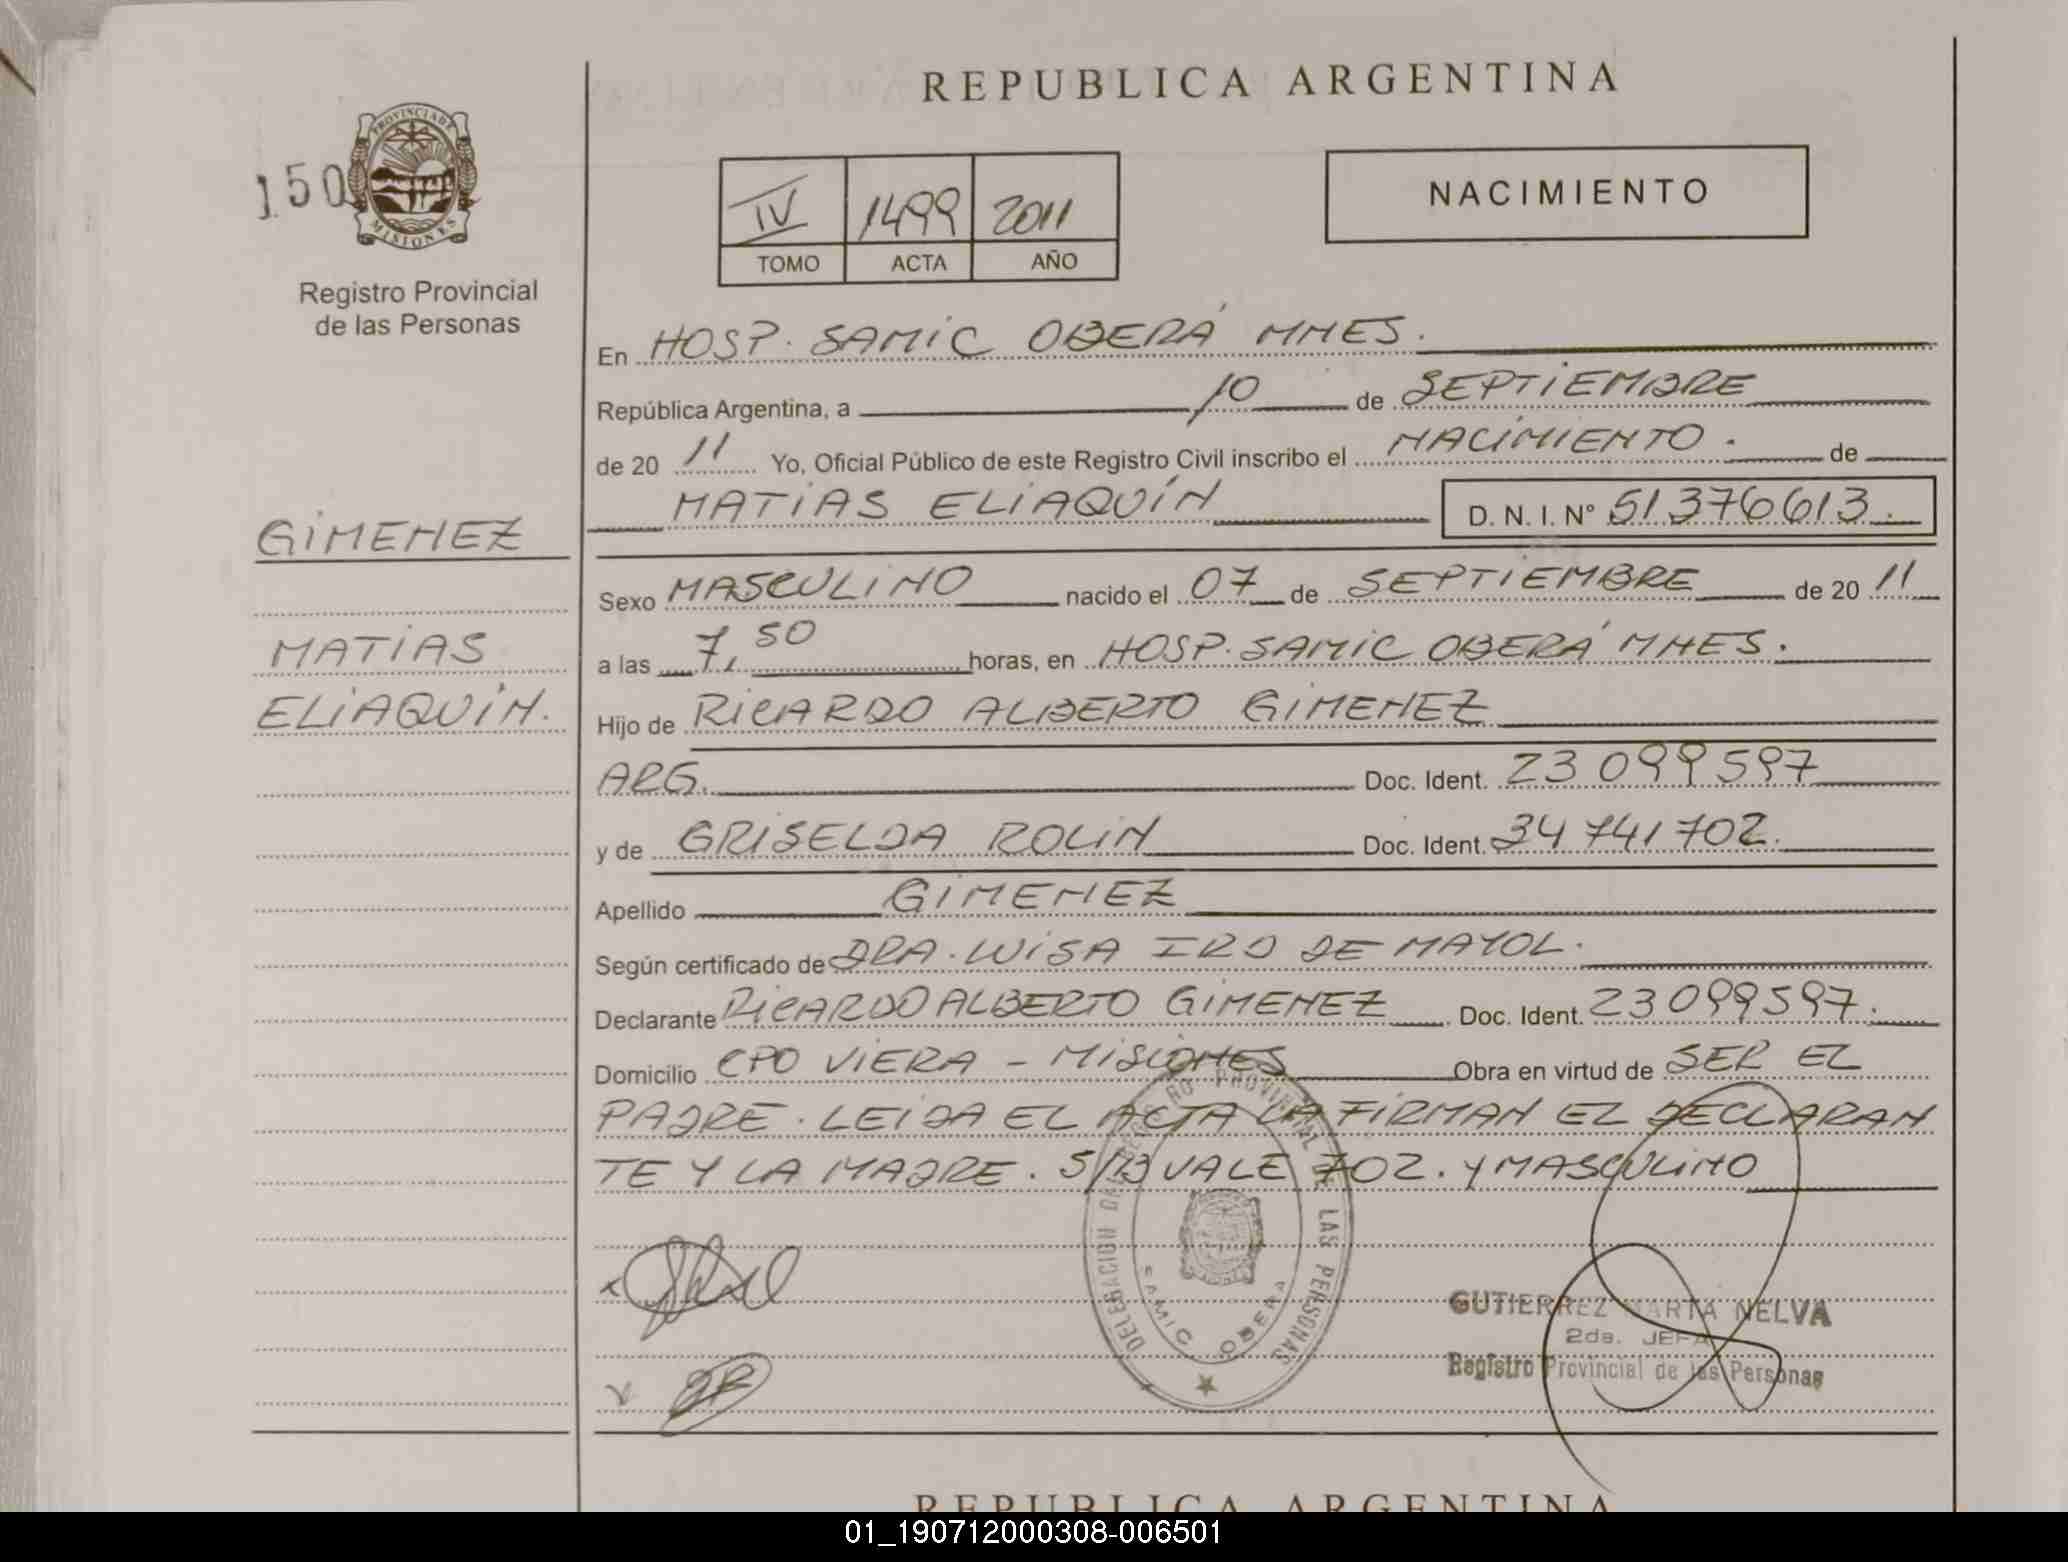 REPUBLICA ARGENTINA
150
PROVINCIA DE
MISIONES
Registro Provincial
de las Personas
IV 1499 2011
TOMO ACTA AÑO
NACIMIENTO
En HOSP. SAMIC OBERÁ MNES.
República Argentina, a 10 de SEPTIEMBRE
de 20 11 Yo, Oficial Público de este Registro Civil inscribo el NACIMIENTO. de
MATIAS ELIAQUÍN D. N. I. N° 51.376613.
GIMENEZ
MATIAS
ELIAQUÍN.
Sexo MASCULINO nacido el 07 de SEPTIEMBRE de 20 11
a las 7,50 horas, en HOSP. SAMIC OBERÁ MNES.
Hijo de RICARDO ALBERTO GIMENEZ
ARG. Doc. Ident. 23 099597
y de GRISELDA ROLIN Doc. Ident. 34 741702.
Apellido GIMENEZ
Según certificado de DRA. LUISA IRD DE MAYOL.
Declarante RICARDO ALBERTO GIMENEZ Doc. Ident. 23099597.
Domicilio CPO VIERA - MISIONES Obra en virtud de SER EL
PADRE. LEIDA EL ACTA LA FIRMAN EL DECLARAN
TE Y LA MADRE. S/B VALE 702. Y MASCULINO
DELEGACION DEL REGISTRO PROVINCIAL DE LAS PERSONAS
SAMIC OBERA
GUTIERREZ MARTA NELVA
2da. JEFA
Registro Provincial de las Personas
REPUBLICA ARGENTINA
01_190712000308-006501